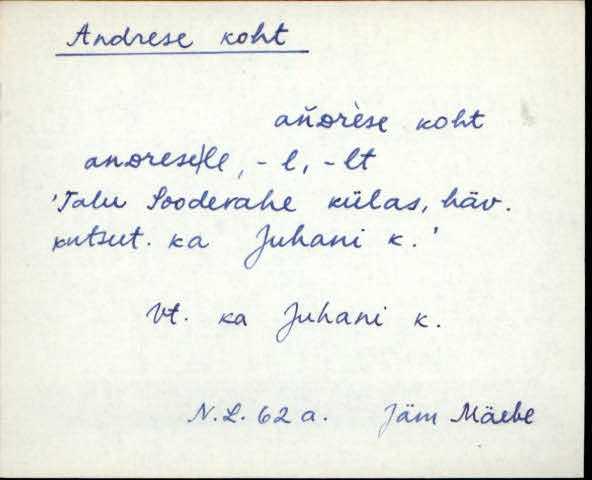 Andrese koht
an̆ᴅrèse koht
anᴅrese|le, -l, -lt
'Talu Soodevahe külas, häv.
kutsut. ka Juhani k.'
Vt. ka Juhani k.
N.L. 62 a. Jäm Mäebe